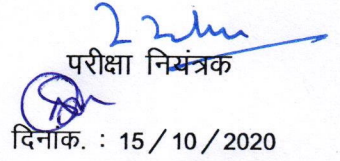 परीक्षा नियंत्रक
दिनांक. : 15 / 10 / 2020